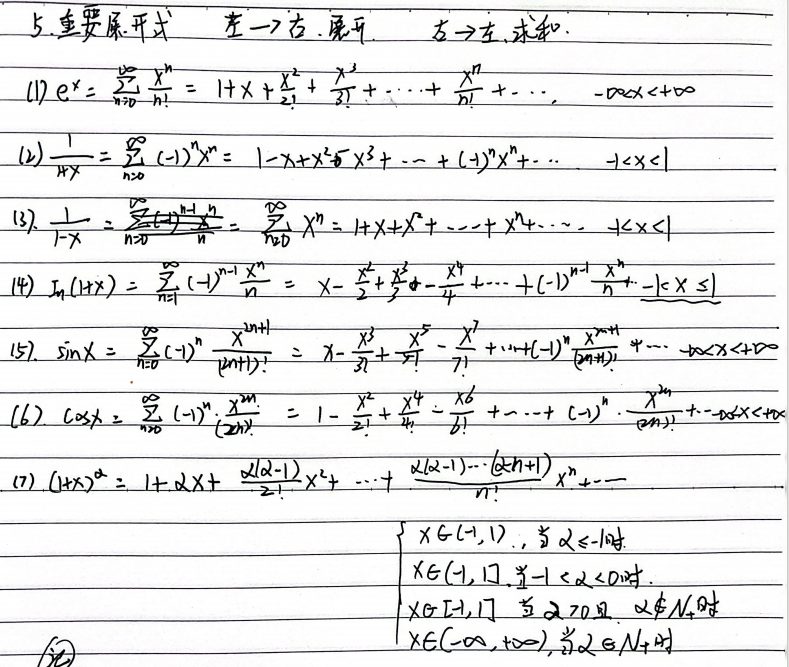 5. 重要展开式 左→右. 展开 右→左. 求和.
(1) e^x = ∑_{n=0}^{∞} x^n/n! = 1+x+x²/2!+x³/3!+⋯+x^n/n!+⋯, -∞<x<+∞
(2) 1/(1+x) = ∑_{n=0}^{∞} (-1)^n x^n = 1-x+x²-x³+⋯+(-1)^n x^n+⋯ -1<x<1
(3). 1/(1-x) = ∑_{n=0}^{∞} x^n = 1+x+x²+⋯+x^n+⋯ -1<x<1
(4) ln(1+x) = ∑_{n=1}^{∞} (-1)^{n-1} x^n/n = x-x²/2+x³/3-x⁴/4+⋯+(-1)^{n-1} x^n/n+ -1<x≤1
(5). sinx = ∑_{n=0}^{∞} (-1)^n x^{2n+1}/(2n+1)! = x-x³/3!+x⁵/5!-x⁷/7!+⋯+(-1)^n x^{2n+1}/(2n+1)!+⋯ -∞<x<+∞
(6). cosx = ∑_{n=0}^{∞} (-1)^n·x^{2n}/(2n)! = 1-x²/2!+x⁴/4!-x6/6!+⋯+(-1)^n·x^{2n}/(2n)!+⋯ -∞<x<+∞
(7) (1+x)^α = 1+αx+α(α-1)/2! x²+⋯+α(α-1)⋯(α-n+1)/n! x^n+⋯
{ x∈(-1,1)., 当α≤-1时.
x∈(-1,1], 当-1<α<0时.
x∈[-1,1] 当α>0且 α∉N₊时
x∈(-∞,+∞), 当α∈N₊时